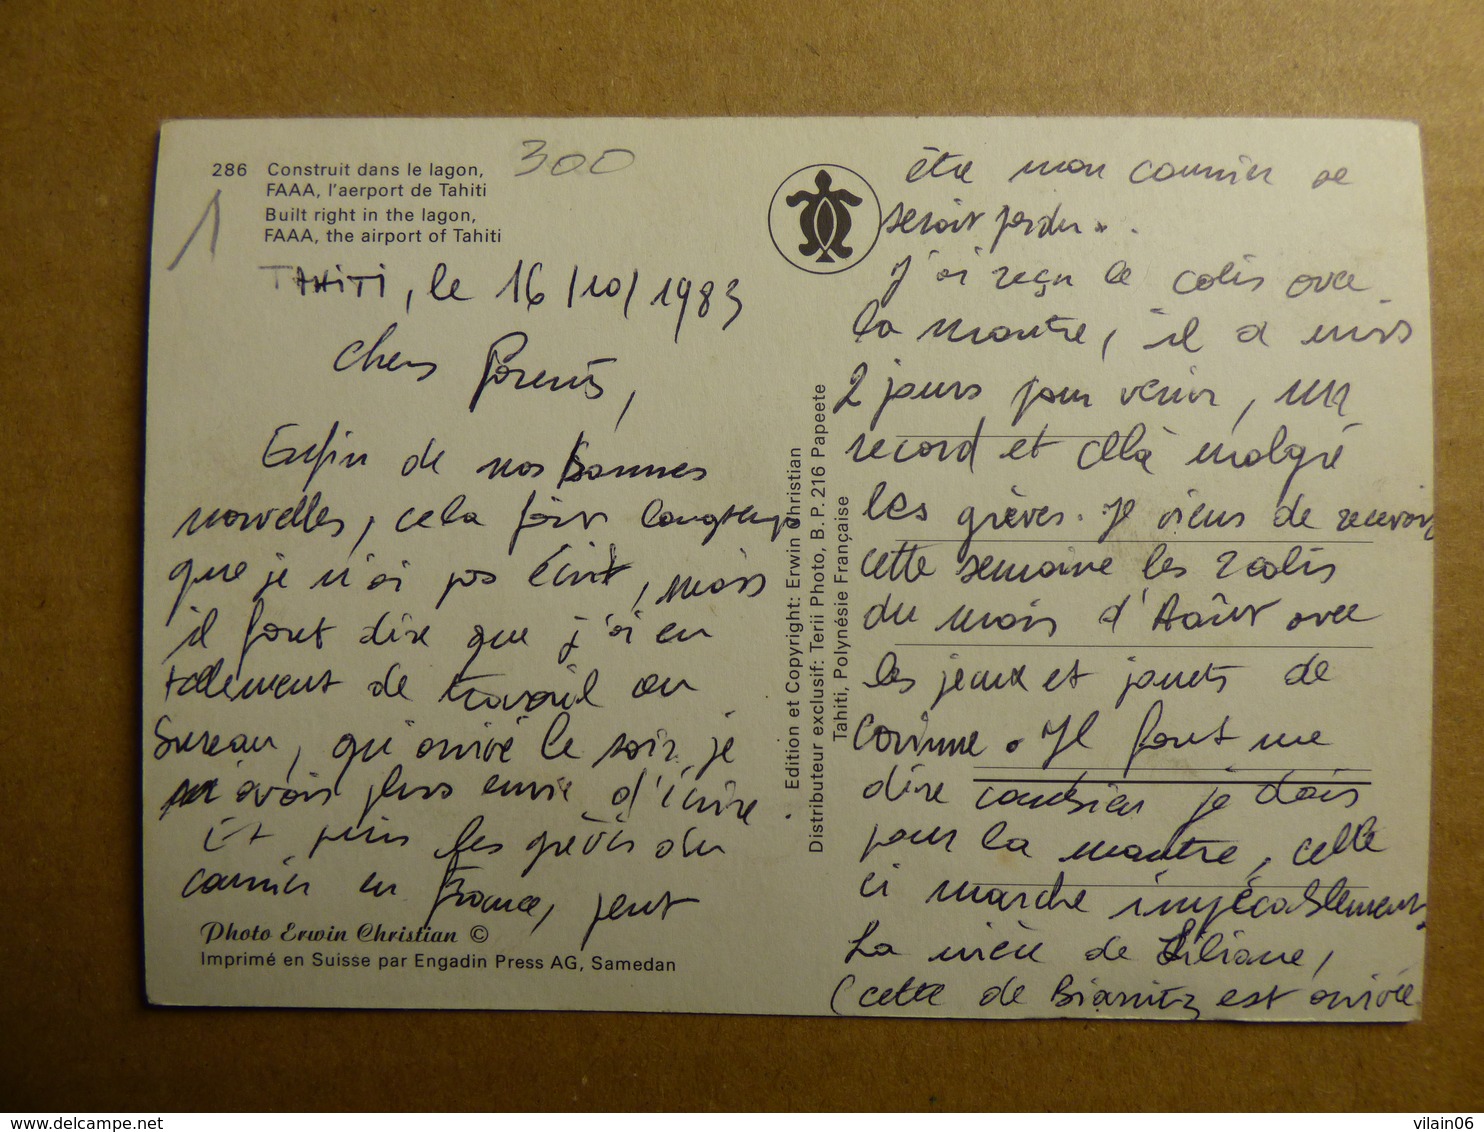 300
286 Construit dans le lagon,
FAAA, l'aerport de Tahiti
Built right in the lagon,
FAAA, the airport of Tahiti
1
TAHITI, le 16/10/1983
Chers Parents,
Enfin de nos bonnes
nouvelles, cela fait longtemps
que je n'ai pas écrit, mais
il faut dire que j'ai eu
tellement de travail au
bureau, qu'arrivé le soir, je
n'avais plus envie d'écrire
Et puis les grèves du
courrier en France, peut
Photo Erwin Christian ©
Imprimé en Suisse par Engadin Press AG, Samedan
Edition et Copyright: Erwin Christian
Distributeur exclusif: Terii Photo, B. P. 216 Papeete
Tahiti, Polynésie Française
être mon courrier se
serait perdu..
J'ai reçu le colis avec
la montre, il a mis
2 jours pour venir, un
record et cela malgré
les grèves. Je viens de recevoir
cette semaine les 2 colis
du mois d'Août avec
les jeux et jouets de
Corinne. Il faut me
dire combien je dois
pour la montre, celle
ci marche impécablement,
La nièce de Liliane,
(cette de Biarritz est arrivée
delcampe.net
vilain06